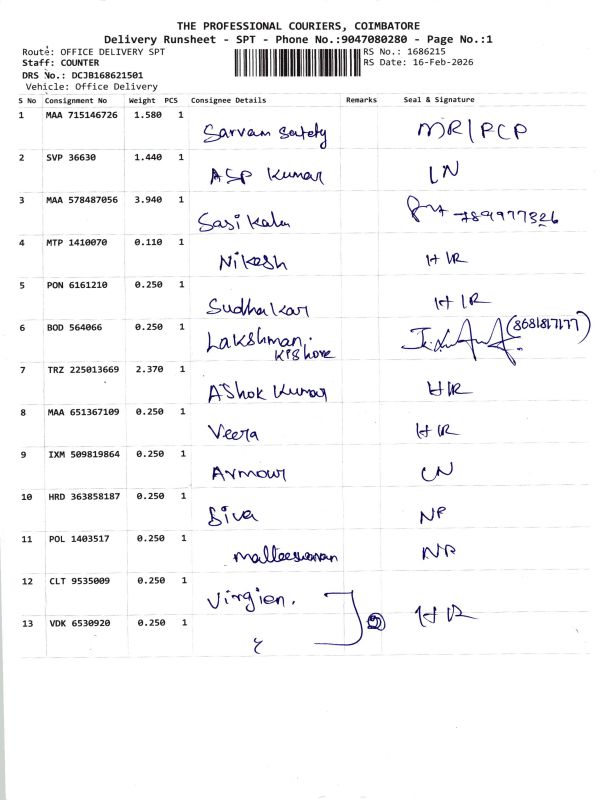 THE PROFESSIONAL COURIERS, COIMBATORE
Delivery Runsheet - SPT - Phone No.:9047080280 - Page No.:1
Route: OFFICE DELIVERY SPT RS No.: 1686215
Staff: COUNTER RS Date: 16-Feb-2026
DRS No.: DCJB168621501
Vehicle: Office Delivery
S No Consignment No Weight PCS Consignee Details Remarks Seal & Signature
1 MAA 715146726 1.580 1
Sarvam Satety MR/PCP
2 SVP 36630 1.440 1
ASP Kumar LN
3 MAA 578487056 3.940 1
Sasi Kala 789977326
4 MTP 1410070 0.110 1
Nikesh HIR
5 PON 6161210 0.250 1
Sudhakar HIR
6 BOD 564066 0.250 1 (8681817177)
Lakshman.
Kishore
7 TRZ 225013669 2.370 1
AShok Kumar HIR
8 MAA 651367109 0.250 1
Veera HIR
9 IXM 509819864 0.250 1
Armour LN
10 HRD 363858187 0.250 1
Siva NP
11 POL 1403517 0.250 1
Malleeswaran NP
12 CLT 9535009 0.250 1
Virgien.
13 VDK 6530920 0.250 1 HIR